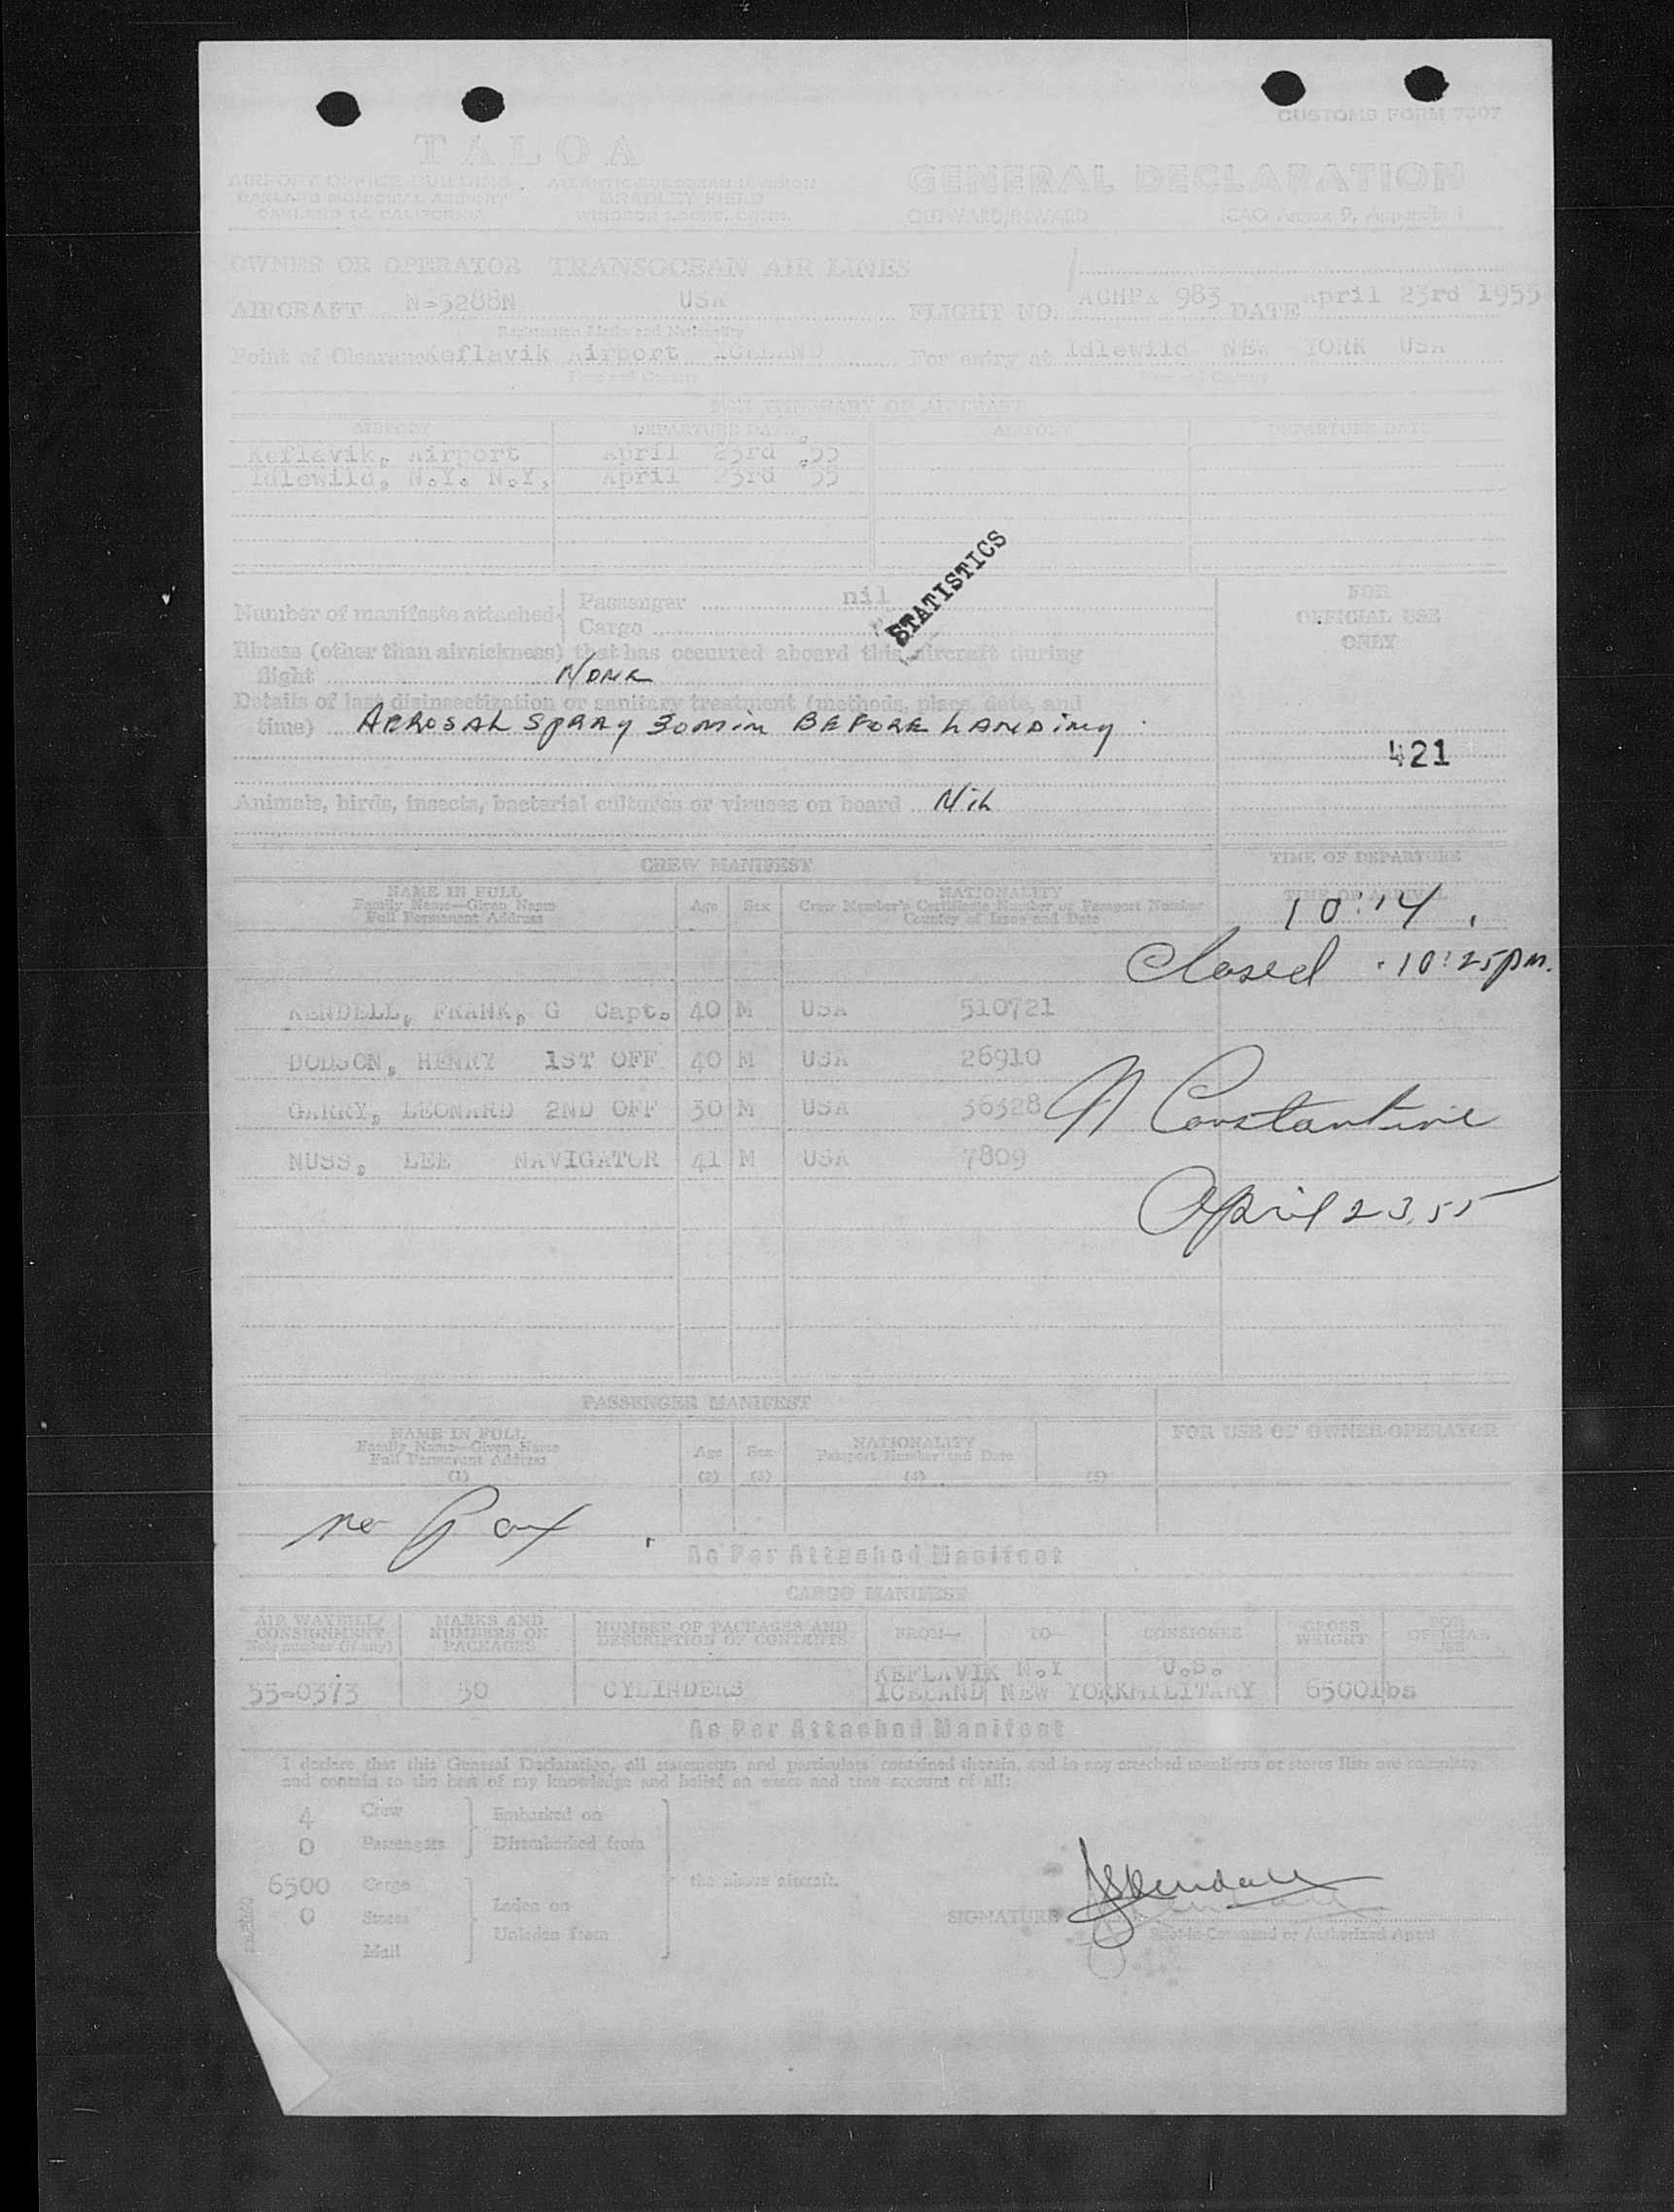 CUSTOMS FORM 7507
TALOA
AIRPORT OFFICE BUILDING
OAKLAND MUNICIPAL AIRPORT
OAKLAND 14, CALIFORNIA
ATLANTIC-EUROPEAN DIVISION
BRADLEY FIELD
WINDSOR LOCKS, CONN.
GENERAL DECLARATION
OUTWARD/INWARD ICAO Annex 9, Appendix 1
OWNER OR OPERATOR TRANSOCEAN AIR LINES
AIRCRAFT N-5288N USA FLIGHT NO. 983 DATE April 23rd 1955
Registration Marks and Nationality
Point of Clearance Keflavik Airport ICELAND For entry at Idlewild NEW YORK USA
Place and Country Place and Country
FOR ITINERARY OF AIRCRAFT
AIRPORT DEPARTURE DATE AIRPORT DEPARTURE DATE
Keflavik, Airport April 23rd '55
Idlewild, N.Y. N.Y, April 23rd '55
STATISTICS
Number of manifests attached Passenger nil
Cargo
FOR
OFFICIAL USE
ONLY
Illness (other than airsickness) that has occurred aboard this aircraft during
flight NONE
Details of last disinsectization or sanitary treatment (methods, place, date, and
time) AEROSAL SPRAY 30 min BEFORE LANDING
421
Animals, birds, insects, bacterial cultures or viruses on board Nil
CREW MANIFEST
TIME OF DEPARTURE
NAME IN FULL
Family Name—Given Name
Full Permanent Address
Age Sex
NATIONALITY
Crew Member's Certificate Number or Passport Number
Country of Issue and Date
TIME OF ARRIVAL
10:14
Closed 10:25pm.
KENDELL, FRANK, G Capt. 40 M USA 510721
DODSON, HENRY 1ST OFF 40 M USA 26910
GARRY, LEONARD 2ND OFF 30 M USA 36328
N Constantine
NUSS, LEE NAVIGATOR 41 M USA 7809
April 23, 55
PASSENGER MANIFEST
NAME IN FULL
Family Name—Given Name
Full Permanent Address
(1)
Age
(2)
Sex
(3)
NATIONALITY
Passport Number and Date
(4)
(5)
FOR USE OF OWNER-OPERATOR
no Pax
As Per Attached Manifest
CARGO MANIFEST
AIR WAYBILL/
CONSIGNMENT
Note number (if any)
MARKS AND
NUMBERS ON
PACKAGES
NUMBER OF PACKAGES AND
DESCRIPTION OF CONTENTS
FROM— TO— CONSIGNEE
GROSS
WEIGHT
FOR
OFFICIAL
USE
KEFLAVIK N.Y U.S.
55-0373 50 CYLINDERS ICELAND NEW YORK MILITARY 6500lbs
As Per Attached Manifest
I declare that this General Declaration, all statements and particulars contained therein, and in any attached manifests or stores lists are complete
and contain to the best of my knowledge and belief an exact and true account of all:
4 Crew Embarked on
0 Passengers Disembarked from
6500 Cargo the above aircraft.
Laden on
0 Stores
Unladen from
Mail
SIGNATURE
Pilot-in-Command or Authorized Agent